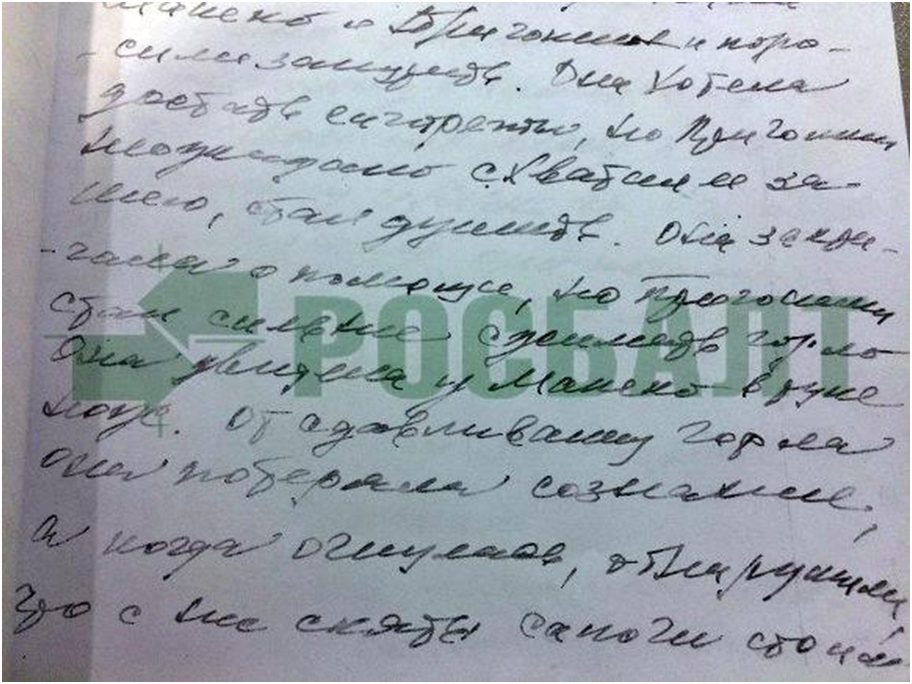 Манско и Пригожин и попро-
-сили закурить. Она хотела
достать сигареты, но Пригожин
неожиданно схватил ее за
шею, стал душить. Она закри-
-чала о помощи, но Пригожин
стал сильнее сдавливать горло
Она увидела у Манско в руке
нож. От сдавливания горла
она потеряла сознание,
а когда очнулась, обнаружила,
что с нее сняты сапоги
РОСБАЛТ